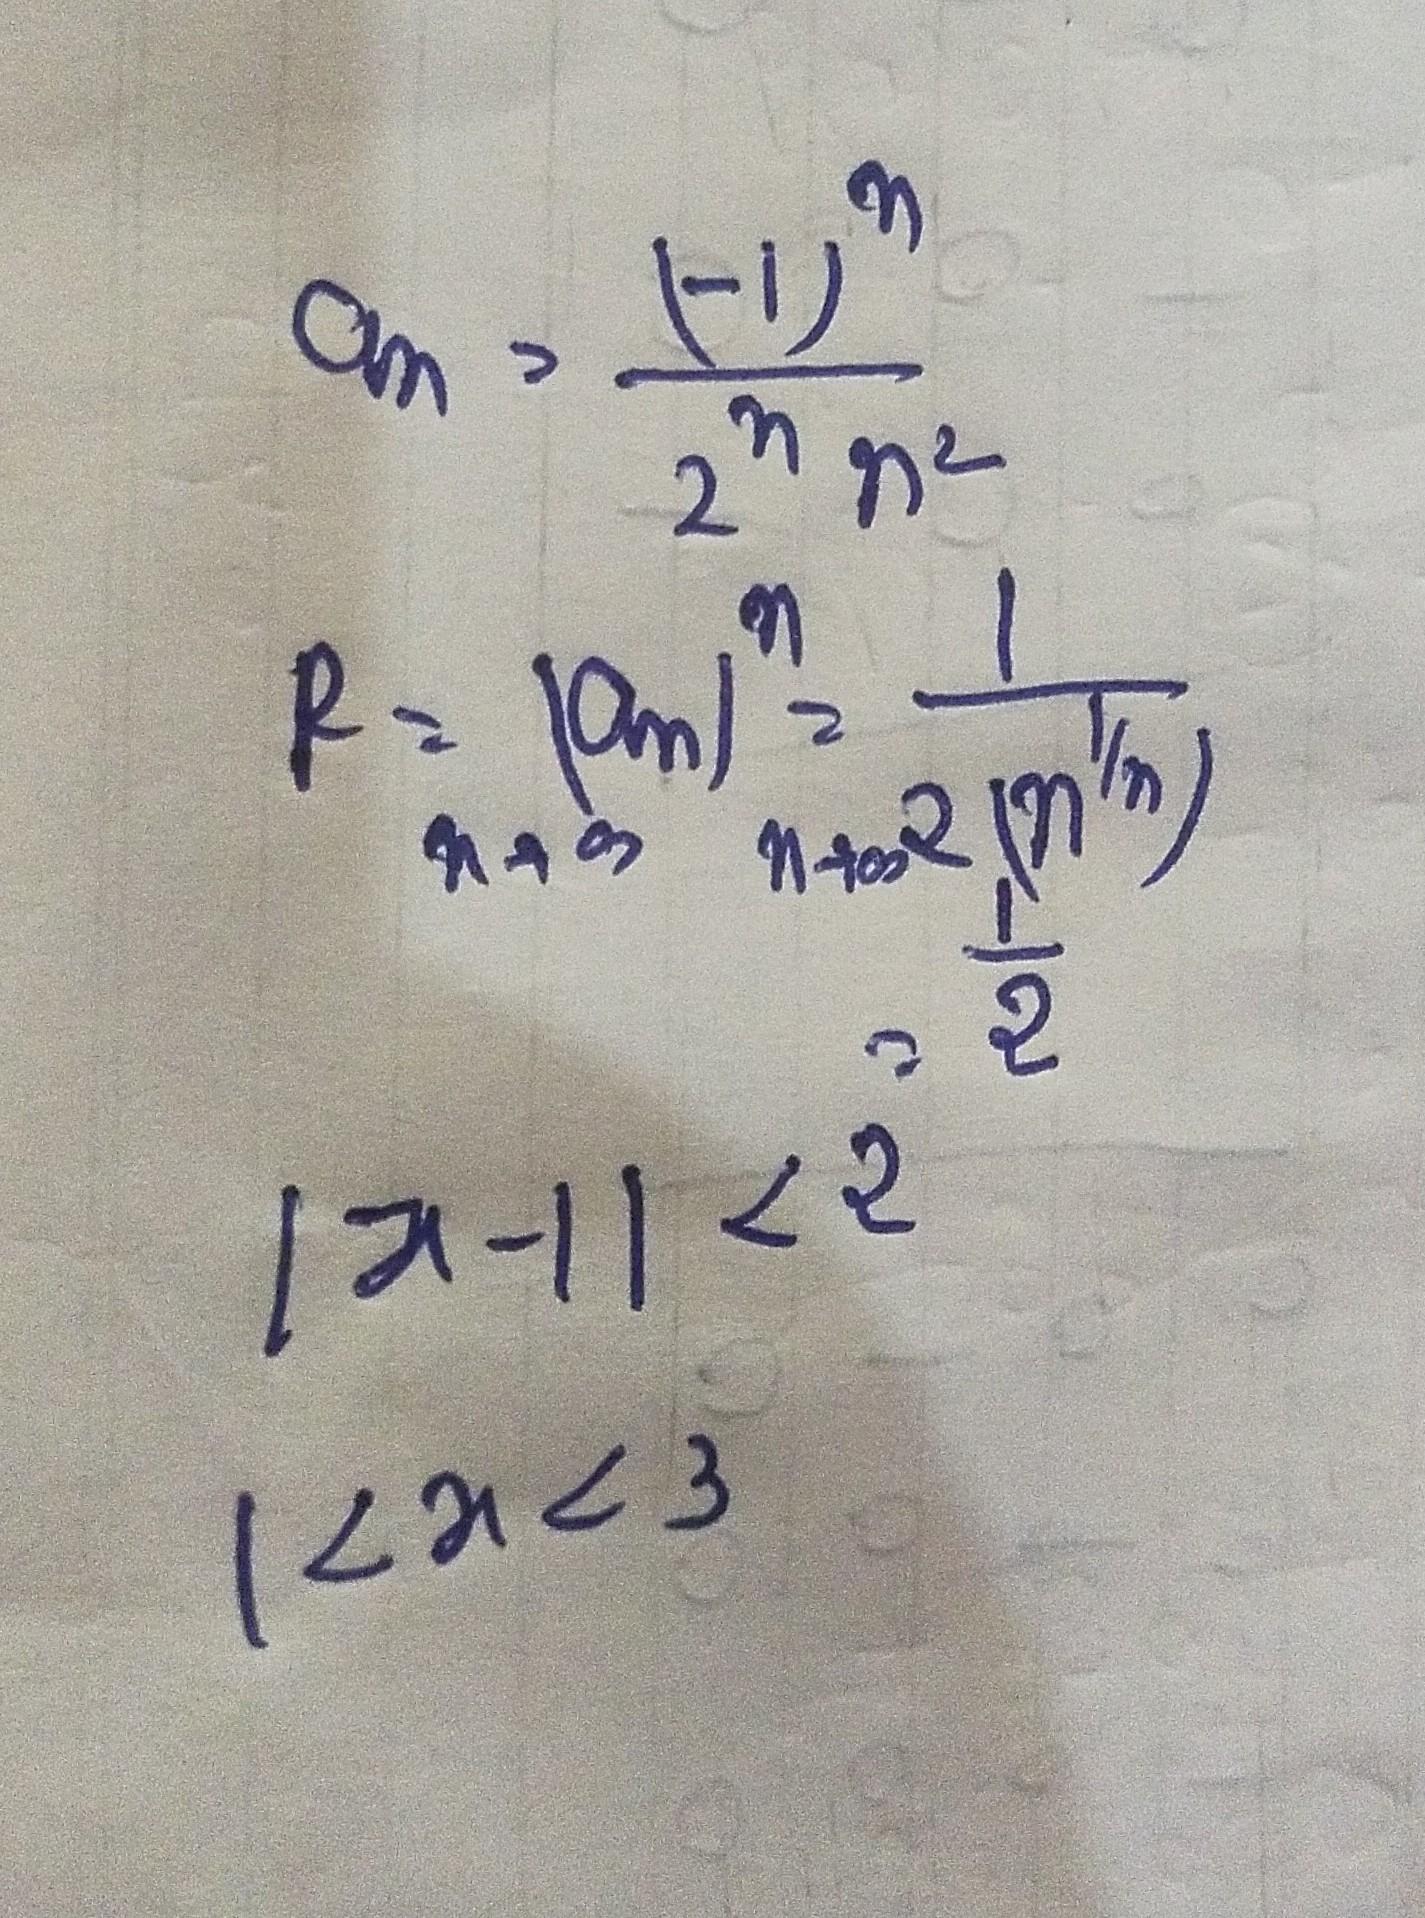 an = (-1)^n / 2^n n^2
R = |an|^n = 1 / 2(n^1/n)
n→∞ n→∞
= 1/2
|x-1| < 2
1 < x < 3